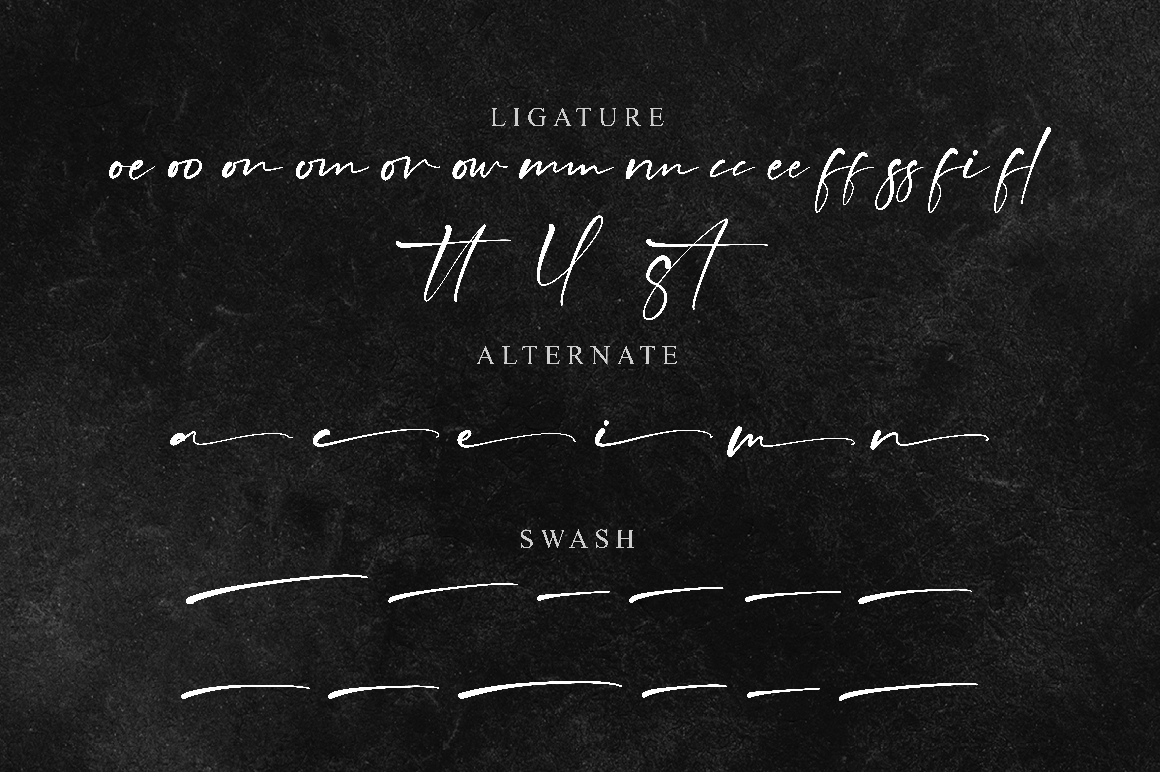 LIGATURE
oe oo on om or ow mm nn cc ee ff ss fi fl
tt ll st
ALTERNATE
a c e i m n
SWASH